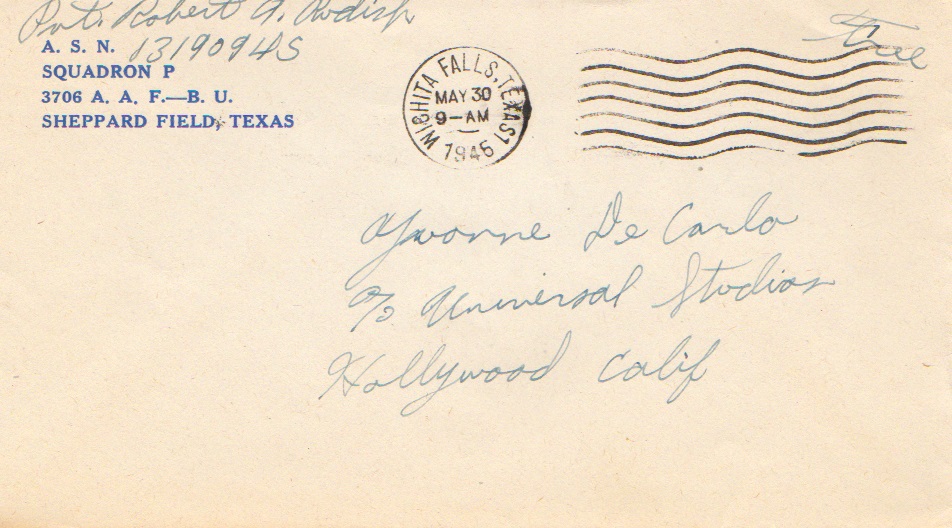 Pvt. Robert A.
A. S. N. 13190945
SQUADRON P
3706 A. A. F.—B. U.
SHEPPARD FIELD, TEXAS
WICHITA FALLS, TEXAS 1
MAY 30
9-AM
1945
Free
Yvonne De Carlo
c/o Universal Studios
Hollywood Calif